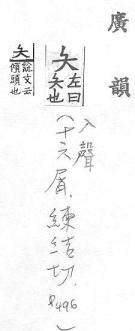 廣韻
夨左曰夨也
夨說文云傾頭也
入聲
(十六屑,練結切.p496)